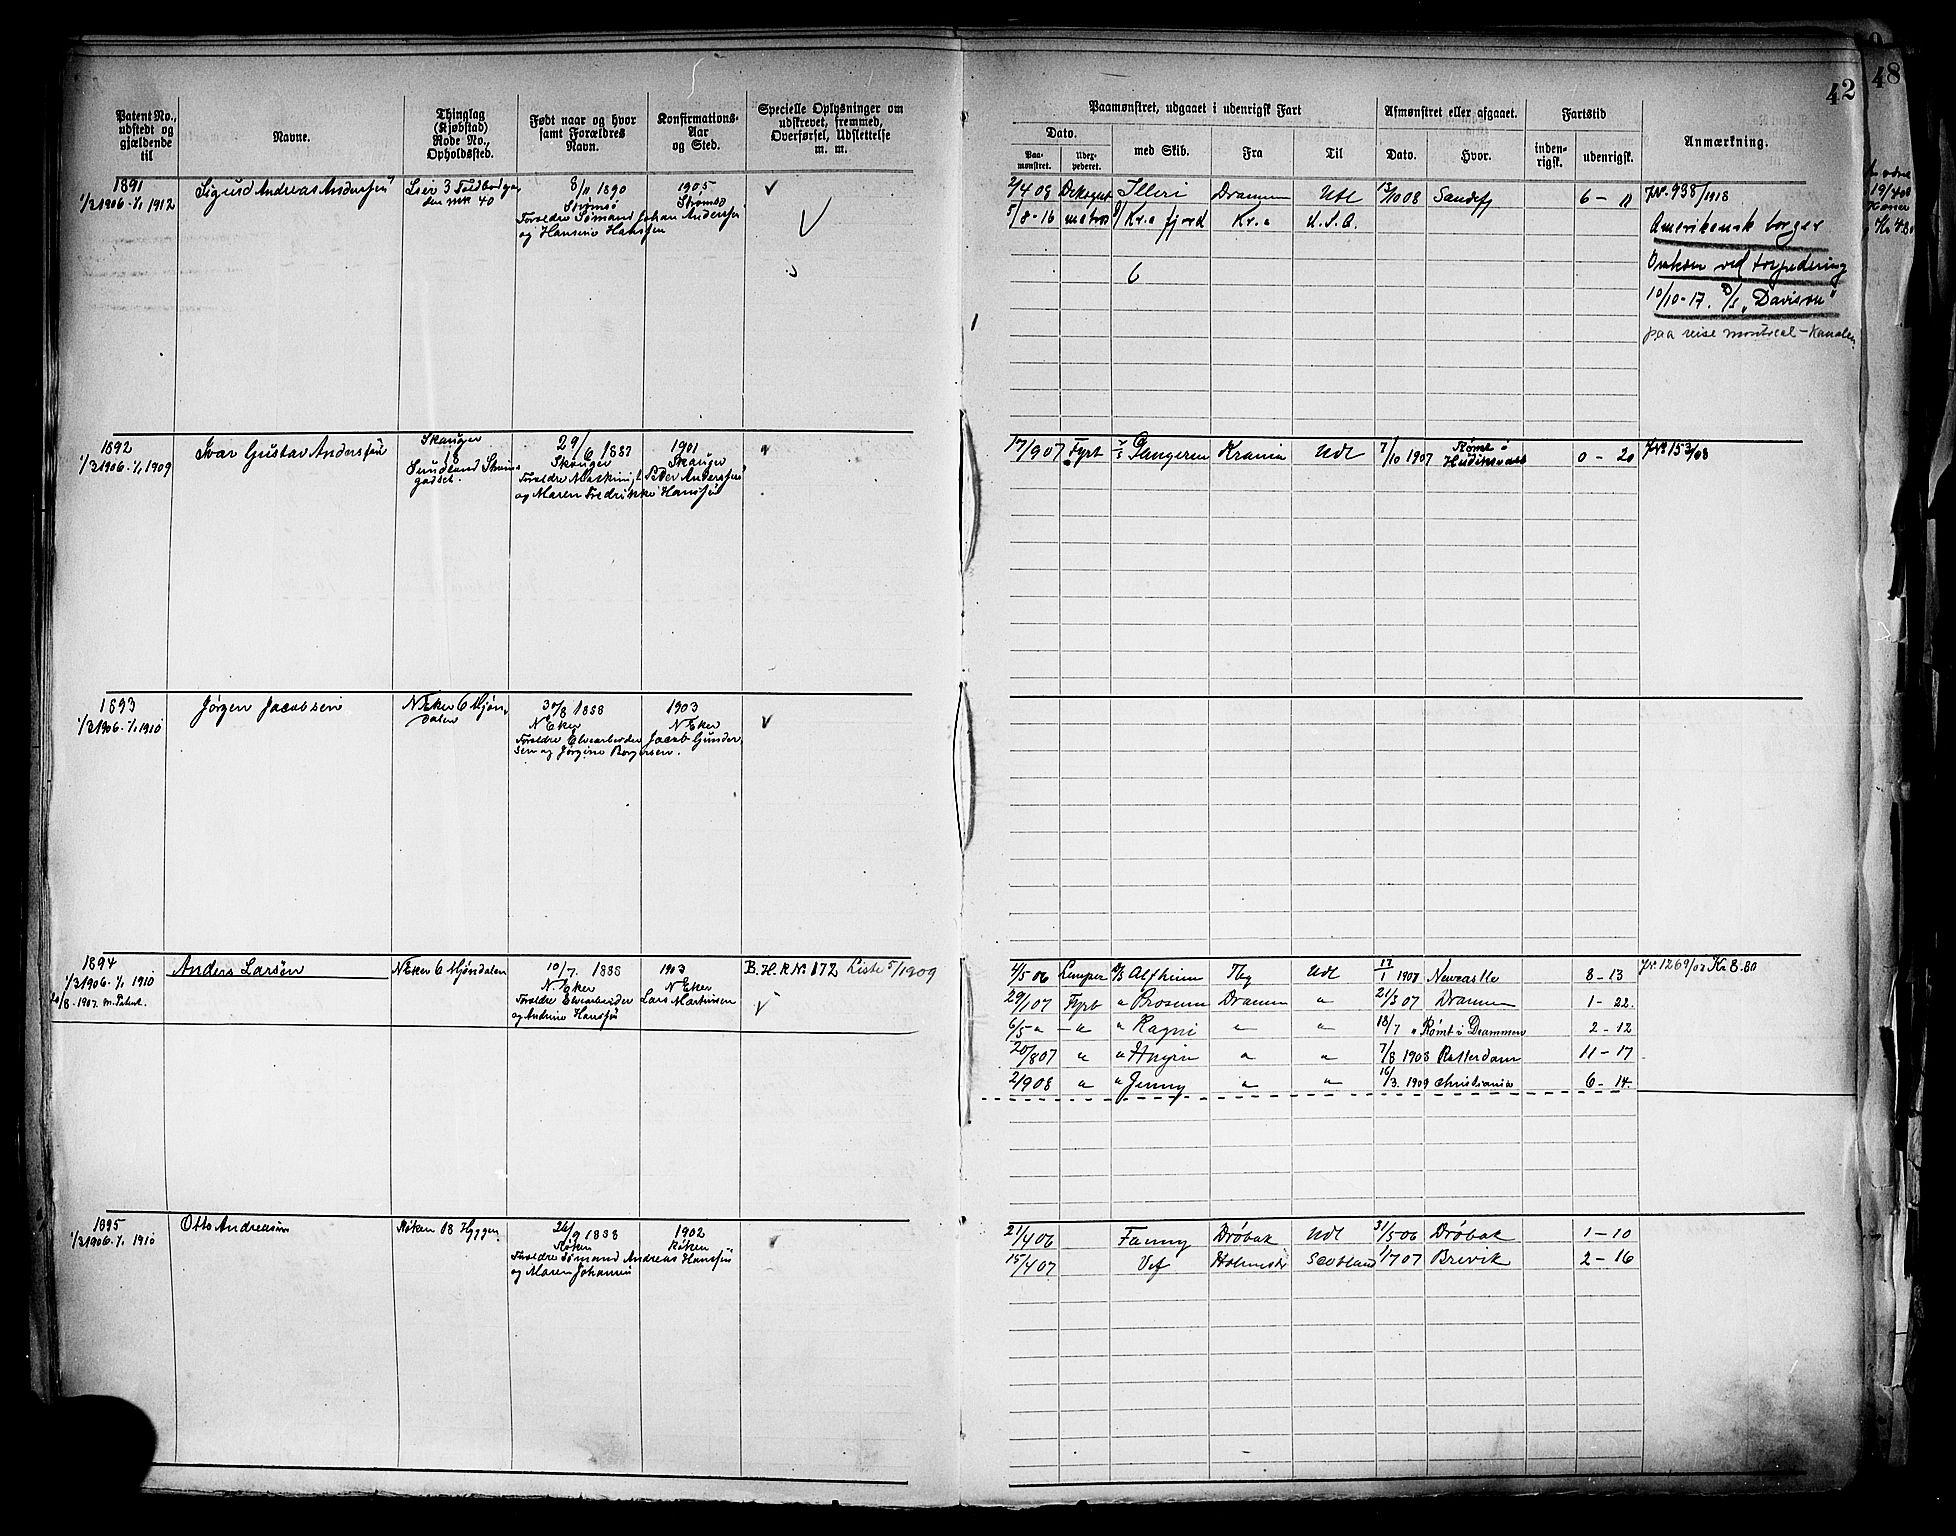 42
48
Patent No., udstedt og gjældende til
Navne.
Thinglag (Kjøbstad) Rode No., Opholdssted.
Født naar og hvor samt Forældres Navn.
Konfirmations-Aar og Sted.
Specielle Oplysninger om udskrevet, fremmed, Overførsel, Udslettelse m. m.
Paamønstret, udgaaet i udenrigsk Fart
Dato.
Paa-mønstret.
Uder-pederet.
med Skib.
Fra
Til
Afmønstret eller afgaaet.
Dato.
Hvor.
Fartstid
inden-rigsk.
udenrigsk.
Anmærkning.
1891
1/3 1906 - 1/1 1912
Sigurd Andreas Anderssen
Lier 3
40
8/11 1890
Strømsø
Forældre Sømand Johan Anderssen
og Hansine Hanssen
1905
Strømsø
2/4 08 Illeri Drammen Udl 13/10 08 Sandefj 6 - 11
5/8-16 matros Kr.a fjord Kr.a U.S.A.
6
JNo. 938/1918
Amerikansk borger
Omkom ved torpedering
10/10-17. D/S "Davison"
paa reise Montreal - Kanalen
1892
1/3 1906 - 1/1 1909
Ivar Gustav Anderssen
Skauger
18
29/6 1887
Skauger
Forældre Maskinist Peder Anderssen
og Maren Fredrikke Hanssen
1901
Skauger
17/9 07 Fyrb Sangeren Krania Udl 7/10 1907 Rømt i Hudiksvall 0 - 20
JNo 153/08
1893
1/3 1906 - 1/1 1910
Jørgen Jacobsen
N Eker 6 Mjøn-
dalen
30/8 1888
N Eker
Forældre Elvearbeider Jacob Gunder-
sen og Jørgine Borgersen.
1903
N Eker
1894
1/3 1906 - 1/1 1910
20/8 - 1907. m. Patent.
Anders Larsen
N Eker 6 Mjøndalen
10/7. 1888
N Eker
Forældre Elvearbeider Lars Martinsen
og Andrine Hanssen
1903
N Eker
B. H. R. No. 172 Liste 5/1909
1/5 06 Lemper D/S Alfheim Tbg Udl 17/1 1907 Newcastle 8 - 13
29/1 07 Fyrb " Drammen " 21/3 07 Drammen 1 - 22
6/5 " " " Ragni " " 18/7 " Rømt i Drammen 2 - 12
20/8 07 " " Hugin " " 7/8 1908 Rotterdam 11 - 17
2/9 08 " " Jenny " " 16/3. 1909 Christiania 6 - 14
JNo. 1269/07 Kr 8.80
1895
1/3 1906 - 1/1 1910
Otto Andreassen
Røken 18 Hyggen
26/9 1888
Røken
Forældre Sømand Andreas Hanssen
og Maren Johansen
1902
Røken
21/4 06 Fanny Drøbak Udl 31/5 06 Drøbak 1 - 10
15/4 07 Vef Holmestr Scotland 1/7 07 Brevik 2 - 16